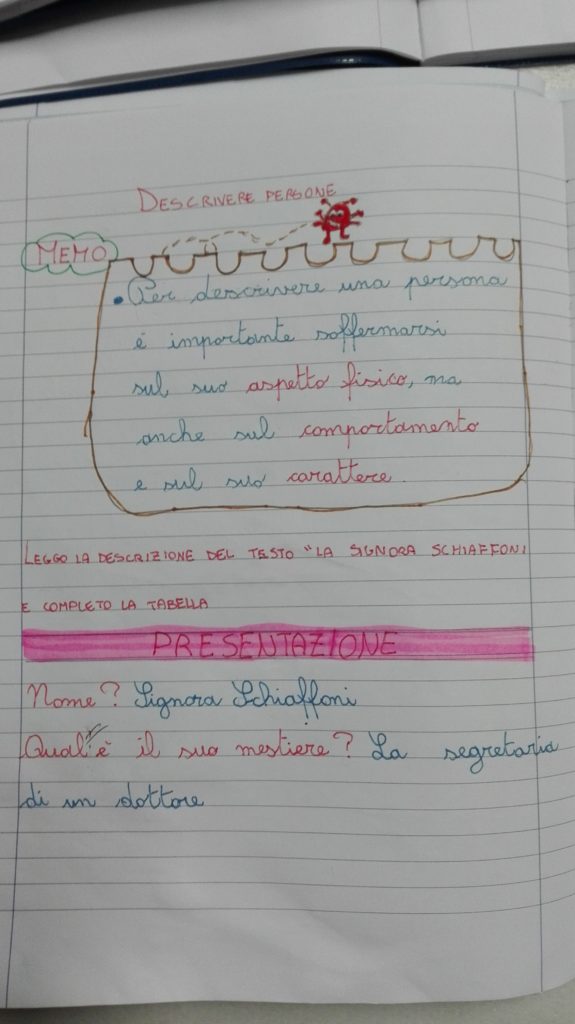 DESCRIVERE PERSONE
MEMO
• Per descrivere una persona
è importante soffermarsi
sul suo aspetto fisico, ma
anche sul comportamento
e sul suo carattere.
LEGGO LA DESCRIZIONE DEL TESTO "LA SIGNORA SCHIAFFONI
E COMPLETO LA TABELLA
PRESENTAZIONE
Nome? Signora Schiaffoni
Qual'è il suo mestiere? La segretaria
di un dottore